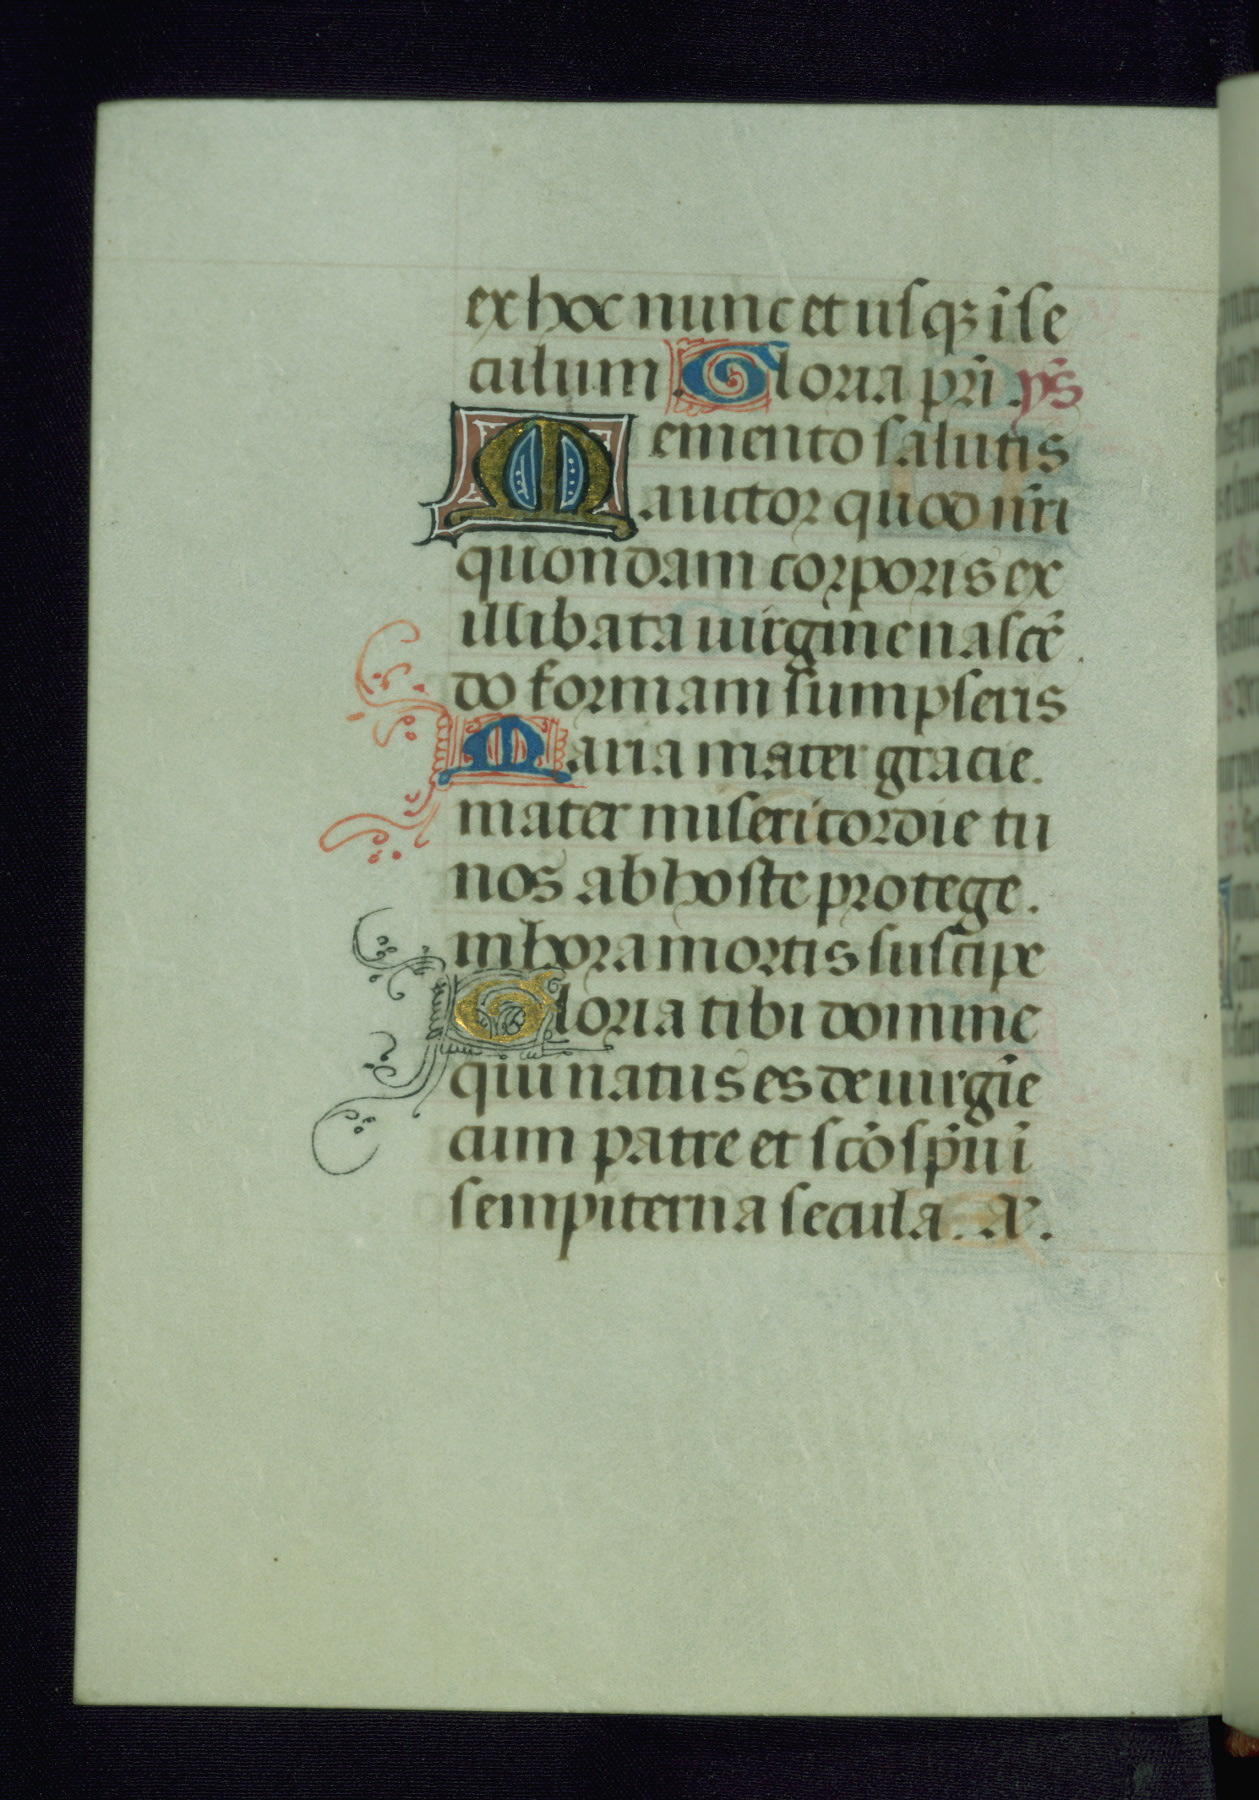 ex hoc nunc et usqꝫ ī se
culum Gloria pr̄i. ps̄
Memento salutis
auctor quod nr̄i
quondam corporis ex
illibata uirgine nascē
do formam sumpseris
Maria mater gracie.
mater misericordie tu
nos ab hoste protege.
in hora mortis suscipe
Gloria tibi domine
qui natus es de uirgīe
cum patre et sc̄o sp̄u ī
sempiterna secula. Am̄.